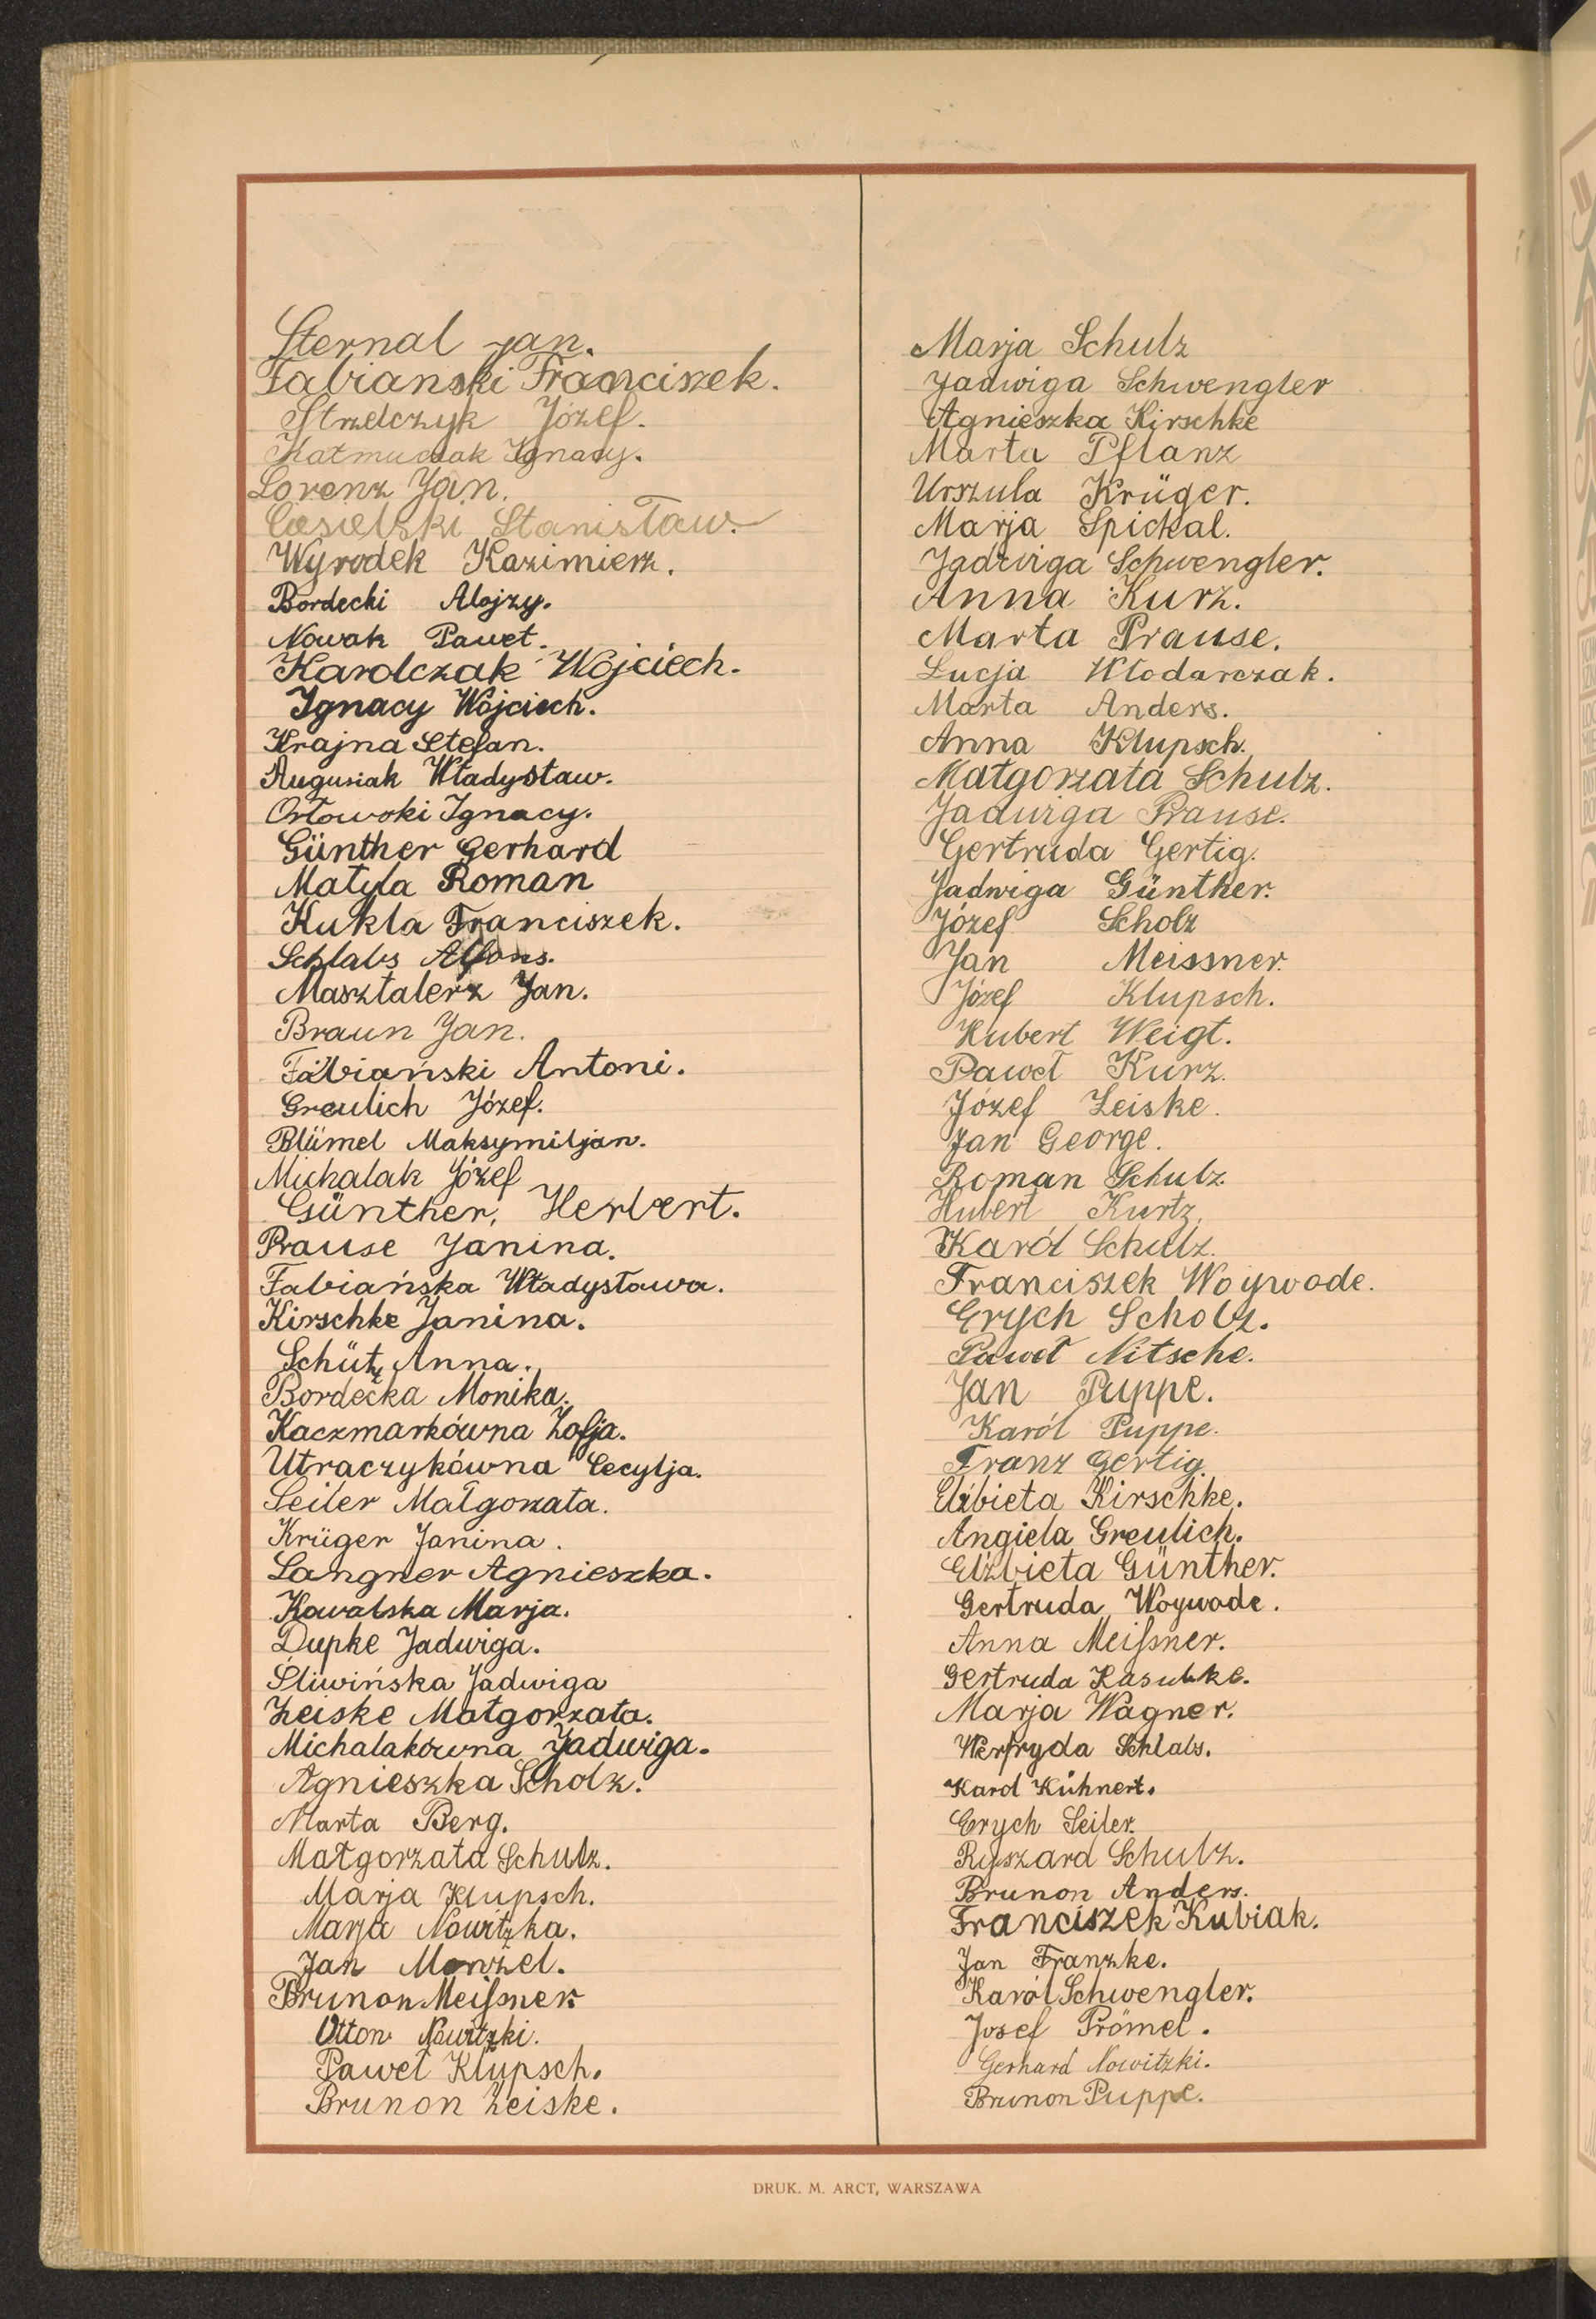 Sternal Jan.
Fabianski Franciszek.
Strzelczyk Józef.
Ignacy.
Lorenz Jan.
Stanisław.
Wyrodek Kazimierz.
Bordecki Alojzy.
Nowak Paweł.
Karolczak Wojciech.
Ignacy Wojciech.
Krajna Stefan.
Augusiak Władysław.
Orłowski Ignacy.
Günther Gerhard
Matyla Roman
Kukla Franciszek.
Schlabs Alfons.
Masztalerz Jan.
Braun Jan.
Fabiański Antoni.
Greulich Józef.
Blümel Maksymiljan.
Michalak Józef
Günther, Herbert.
Prause Janina.
Fabiańska Władysława.
Kirschke Janina.
Schütz Anna.
Bordecka Monika.
Kaczmarkówna Zofja.
Utraczykówna Cecylja.
Seiler Małgorzata.
Krüger Janina.
Langner Agnieszka.
Kowalska Marja.
Dupke Jadwiga.
Śliwińska Jadwiga
Zeiske Małgorzata.
Michalakówna Jadwiga.
Agnieszka Scholz.
Marta Berg.
Małgorzata Schulz.
Marja Klupsch.
Marja Nowitzka.
Jan Menzel.
Brunon Meißner.
Otton Nowitzki.
Paweł Klupsch.
Brunon Zeiske.
Marja Schulz
Jadwiga Schwengler
Agnieszka Kirschke
Marta Pflanz
Urszula Krüger.
Marja Spickal.
Jadwiga Schwengler.
Anna Kurz.
Marta Prause.
Lucja Włodarczak.
Marta Anders.
Anna Klupsch.
Małgorzata Schulz.
Jadwiga Prause.
Gertruda Gertig.
Jadwiga Günther.
Józef Scholz
Jan Meissner.
Józef Klupsch.
Hubert Weigt.
Paweł Kurz.
Józef Zeiske.
Jan George.
Roman Schulz.
Hubert Kurtz.
Karól Schulz.
Franciszek Woywode.
Erych Scholz.
Paweł Nitsche.
Jan Puppe.
Karól Puppe.
Franz Gertig.
Elżbieta Kirschke.
Angiela Greulich.
Elżbieta Günther.
Gertruda Woywode.
Anna Meißner.
Gertruda Kasubke.
Marja Wagner.
Werfryda Schlabs.
Karol Kühnert.
Erych Seiler.
Ryszard Schulz.
Brunon Anders.
Franciszek Kubiak.
Jan Franzke.
Karól Schwengler.
Josef Prömel.
Gerhard Nowitzki.
Brunon Puppe.
DRUK. M. ARCT, WARSZAWA